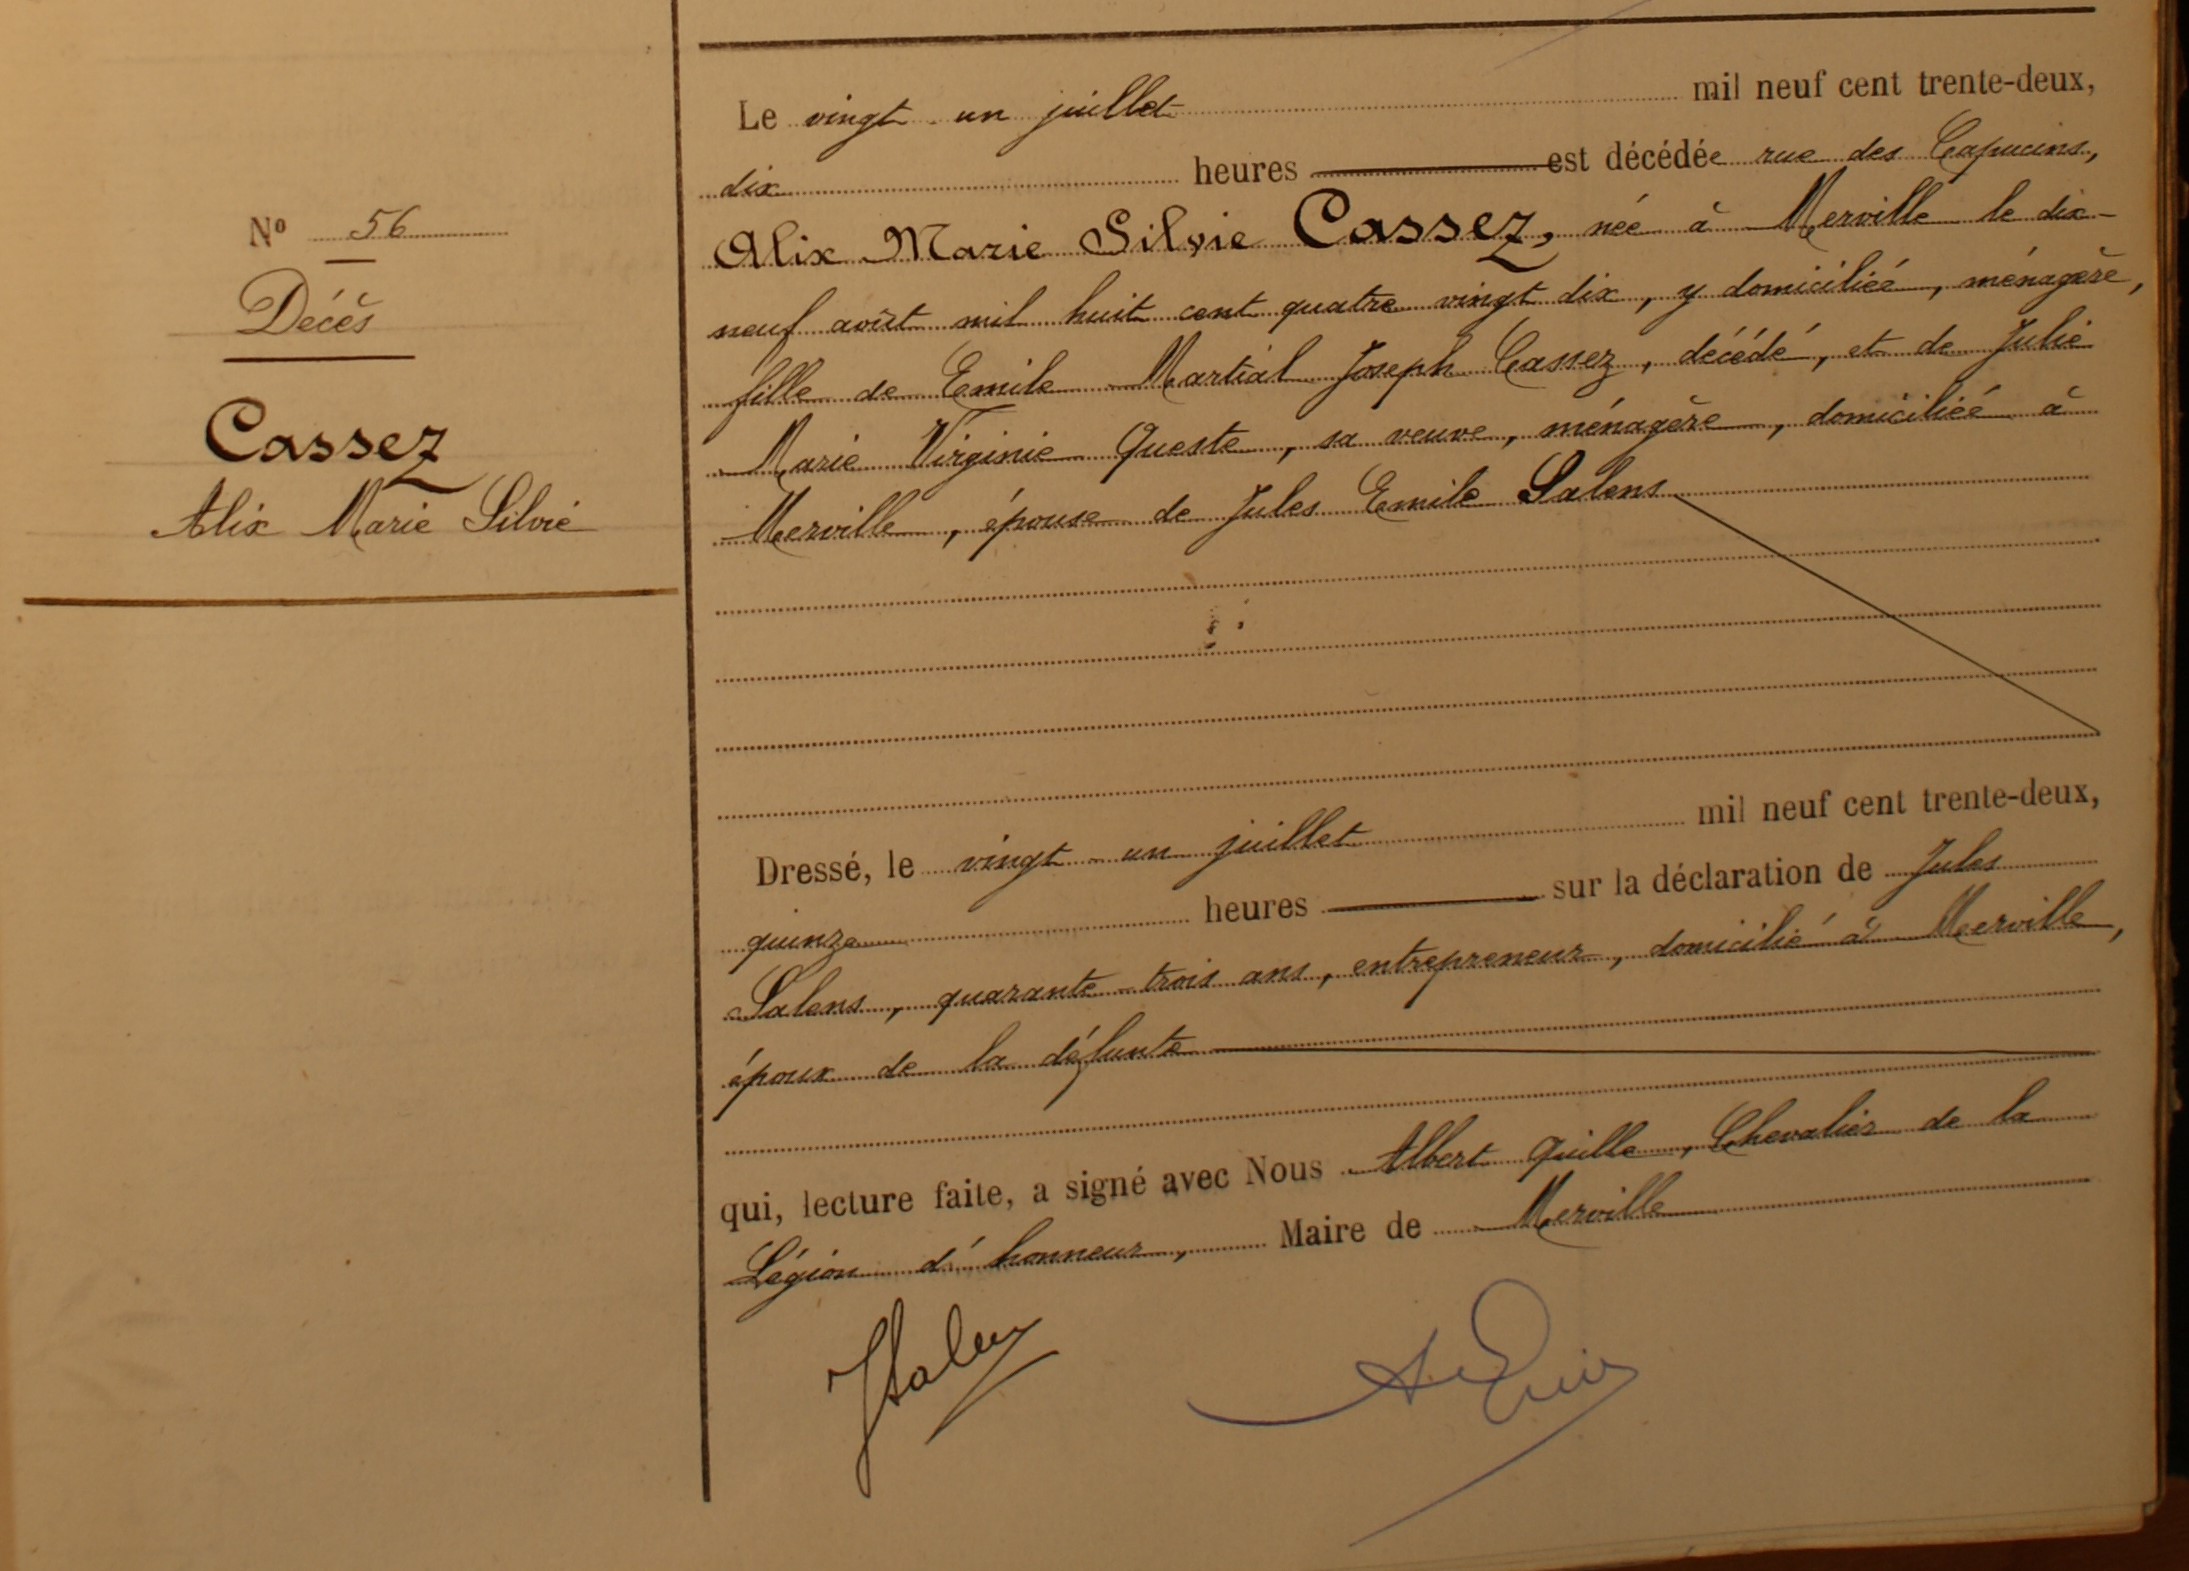 N° 56
Décès
Cassez
Alix Marie Silvie
Le vingt-un juillet mil neuf cent trente-deux,
dix heures est décédée rue des Capucins,
Alix Marie Silvie Cassez, née à Merville le dix-
neuf août mil huit cent quatre vingt dix, y domiciliée, ménagère,
fille de Emile Martial Joseph Cassez, décédé, et de Julie
Marie Virginie Queste, sa veuve, ménagère, domiciliée à
Merville, épouse de Jules Emile Salens
Dressé, le vingt-un juillet mil neuf cent trente-deux,
quinze heures sur la déclaration de Jules
Salens, quarante-trois ans, entrepreneur, domicilié à Merville,
époux de la défunte
qui, lecture faite, a signé avec Nous Albert Quille, Chevalier de la
Légion d'honneur, Maire de Merville